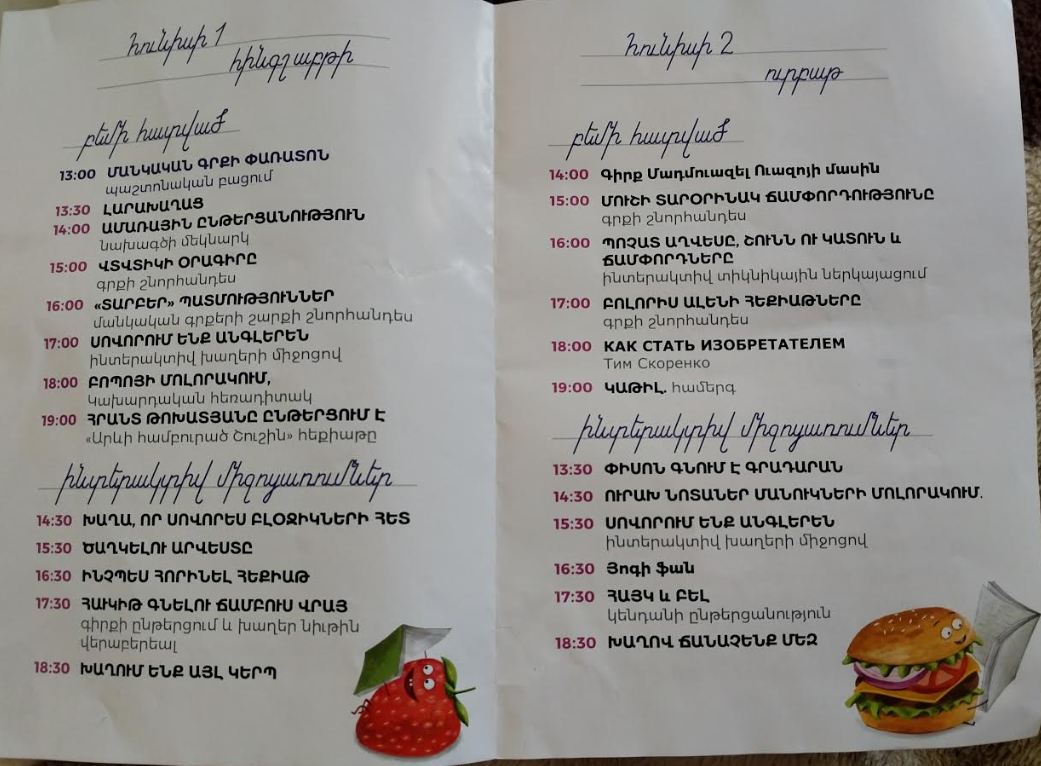 հունիսի 1
հինգշաբթի
բեմի հատված
13:00 ՄԱՆԿԱԿԱՆ ԳՐՔԻ ՓԱՌԱՏՈՆ
պաշտոնական բացում
13:30 ԼԱՐԱԽԱՂԱՑ
14:00 ԱՄԱՌԱՅԻՆ ԸՆԹԵՐՑԱՆՈՒԹՅՈՒՆ
նախագծի մեկնարկ
15:00 ՎՏՎՏԻԿԻ ՕՐԱԳԻՐԸ
գրքի շնորհանդես
16:00 «ՏԱՐԲԵՐ» ՊԱՏՄՈՒԹՅՈՒՆՆԵՐ
մանկական գրքերի շարքի շնորհանդես
17:00 ՍՈՎՈՐՈՒՄ ԵՆՔ ԱՆԳԼԵՐԵՆ
ինտերակտիվ խաղերի միջոցով
18:00 ԲՈՊՈՅԻ ՄՈԼՈՐԱԿՈՒՄ,
Կախարդական հեռադիտակ
19:00 ՀՐԱՆՏ ԹՈԽԱՏՅԱՆԸ ԸՆԹԵՐՑՈՒՄ Է
«Արևի համբուրած Շուշին» հեքիաթը
ինտերակտիվ միջոցառումներ
14:30 ԽԱՂԱ, ՈՐ ՍՈՎՈՐԵՍ ԲԼՕՋԻԿՆԵՐԻ ՀԵՏ
15:30 ԾԱՂԿԵԼՈՒ ԱՐՎԵՍՏԸ
16:30 ԻՆՉՊԵՍ ՀՈՐԻՆԵԼ ՀԵՔԻԱԹ
17:30 ՀԱՎԿԻԹ ԳՆԵԼՈՒ ՃԱՄԲՈՒՍ ՎՐԱՅ
գիրքի ընթերցում և խաղեր նիւթին
վերաբերեալ
18:30 ԽԱՂՈՒՄ ԵՆՔ ԱՅԼ ԿԵՐՊ
հունիսի 2
ուրբաթ
բեմի հատված
14:00 Գիրք Մադմուազել Ուազոյի մասին
15:00 ՄՈՒՇԻ ՏԱՐՕՐԻՆԱԿ ՃԱՄՓՈՐԴՈՒԹՅՈՒՆԸ
գրքի շնորհանդես
16:00 ՊՈՉԱՏ ԱՂՎԵՍԸ, ՇՈՒՆՆ ՈՒ ԿԱՏՈՒՆ և
ՃԱՄՓՈՐԴՆԵՐԸ
ինտերակտիվ տիկնիկային ներկայացում
17:00 ԲՈԼՈՐԻՍ ԱԼԵՆԻ ՀԵՔԻԱԹՆԵՐԸ
գրքի շնորհանդես
18:00 КАК СТАТЬ ИЗОБРЕТАТЕЛЕМ
Тим Скоренко
19:00 ԿԱԹԻԼ. համերգ
ինտերակտիվ միջոցառումներ
13:30 ՓԻՍՈՆ ԳՆՈՒՄ Է ԳՐԱԴԱՐԱՆ
14:30 ՈՒՐԱԽ ՆՈՏԱՆԵՐ ՄԱՆՈՒԿՆԵՐԻ ՄՈԼՈՐԱԿՈՒՄ.
15:30 ՍՈՎՈՐՈՒՄ ԵՆՔ ԱՆԳԼԵՐԵՆ
ինտերակտիվ խաղերի միջոցով
16:30 Յոգի ֆան
17:30 ՀԱՅԿ և ԲԵԼ
կենդանի ընթերցանություն
18:30 ԽԱՂՈՎ ՃԱՆԱՉԵՆՔ ՄԵԶ